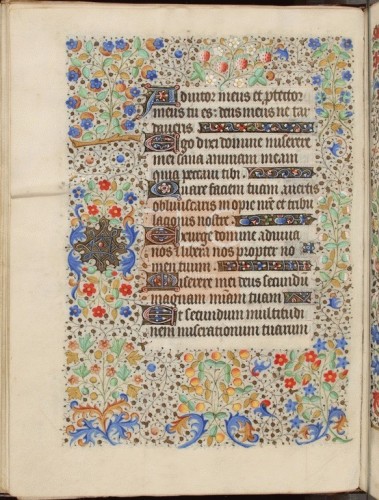 Adiutor meus et ꝓtector
meus tu es: deus meus ne tar
daueris
Ego dixi domine miserere
mei sana animam meam
quia peccaui tibi
Quare faciem tuam auertis
obliuisceris in opie nr̄e et tribu
lationis nostre
Exurge domine adiuua
nos et libera nos propter no
men tuum
Miserere mei deus secundū
magnam miam tuam
Et secundum multitudi
nem miserationum tuarum